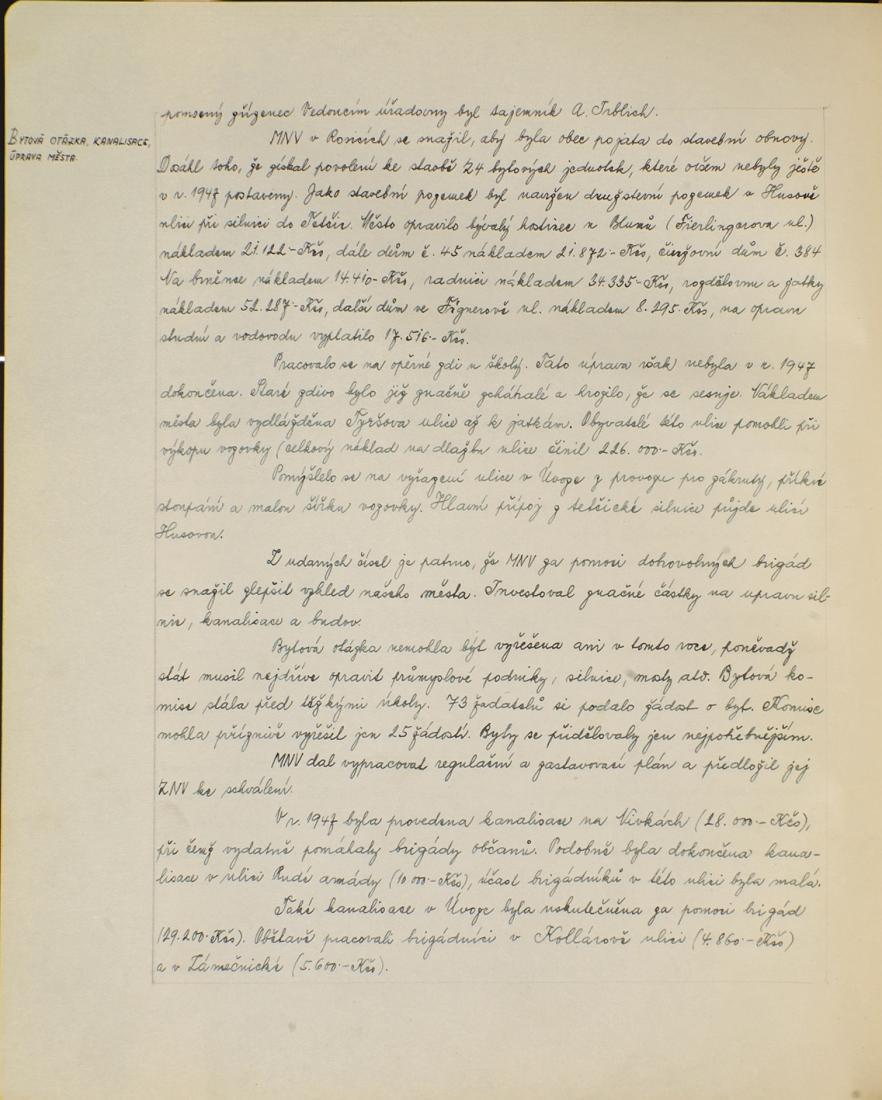 pomocný zřízenec Vedoucím úřadovny byl tajemník A. Trblich.
BYTOVÁ OTÁZKA, KANALISACE,
ÚPRAVA MĚSTA.
MNV v Rosicích se snažil, aby byla obec pojata do stavební obnovy.
Dosáhl toho, že získal povolení ke stavbě 24 bytových jednotek, které ovšem nebyly ještě
v r. 1947 postaveny. Jako stavební pozemek byl navržen družstevní pozemek v Husově
ulici při silnici do Tetčic. Město opravilo bývalý hostinec u Blumů (Fierlingerova ul.)
nákladem 21.122-Kčs, dále dům č. 45 nákladem 21.872-Kčs, činžovní dům č. 384
Na brněnce nákladem 14.410-Kčs, radnici nákladem 34.335-Kčs, rozdělovnu a jatky
nákladem 52.287-Kčs, další dům ve Fignerově ul. nákladem 8.295-Kčs, na opravu
studní a vodovodu vyplatilo 17.516-Kčs.
Pracovalo se na opěrné zdi u školy. Tato úprava však nebyla v r. 1947
dokončena. Staré zdivo bylo již značně zchátralé a hrozilo, že se sesuje. Nákladem
města byla vydlážděna Tyršova ulice až k jatkám. Obyvatelé této ulice pomohli při
výkopu vozovky (celkový náklad na dlažbu ulice činil 226.000-Kčs.
Pomýšlelo se na vyřazení ulice v Úvoze z provozu pro zákruty, příkré
stoupání a malou šířku vozovky. Hlavní přípoj z tetčické silnice půjde ulicí
Husovou.
Z udaných čísel je patrno, že MNV za pomoci dobrovolných brigád
se snažil zlepšit vzhled našeho města. Investoval značné částky na úpravu sil-
nic, kanalisace a budov.
Bytová otázka nemohla být vyřešena ani v tomto roce, poněvadž
stát musil nejdříve opravit průmyslové podniky, silnice, mosty atd. Bytová ko-
mise stála před těžkými úkoly. 73 žadatelů si podalo žádost o byt. Komise
mohla příznivě vyřešit jen 25 žádostí. Byty se přidělovaly jen nejpotřebnějším.
MNV dal vypracovat regulační a zastavovací plán a předložil jej
ZNV ke schválení.
V r. 1947 byla provedena kanalisace na Vivkách (28.000-Kčs),
při čemž vydatně pomáhaly brigády občanů. Podobně byla dokončena kana-
lisace v ulici Rudé armády (10 000-Kčs), účast brigádníků v této ulici byla malá.
Také kanalisace v Úvoze byla uskutečněna za pomoci brigád
(29.200-Kčs). Obětavě pracovali brigádníci v Kollárově ulici (4.860-Kčs)
a v Zámečnické (5.600-Kčs).